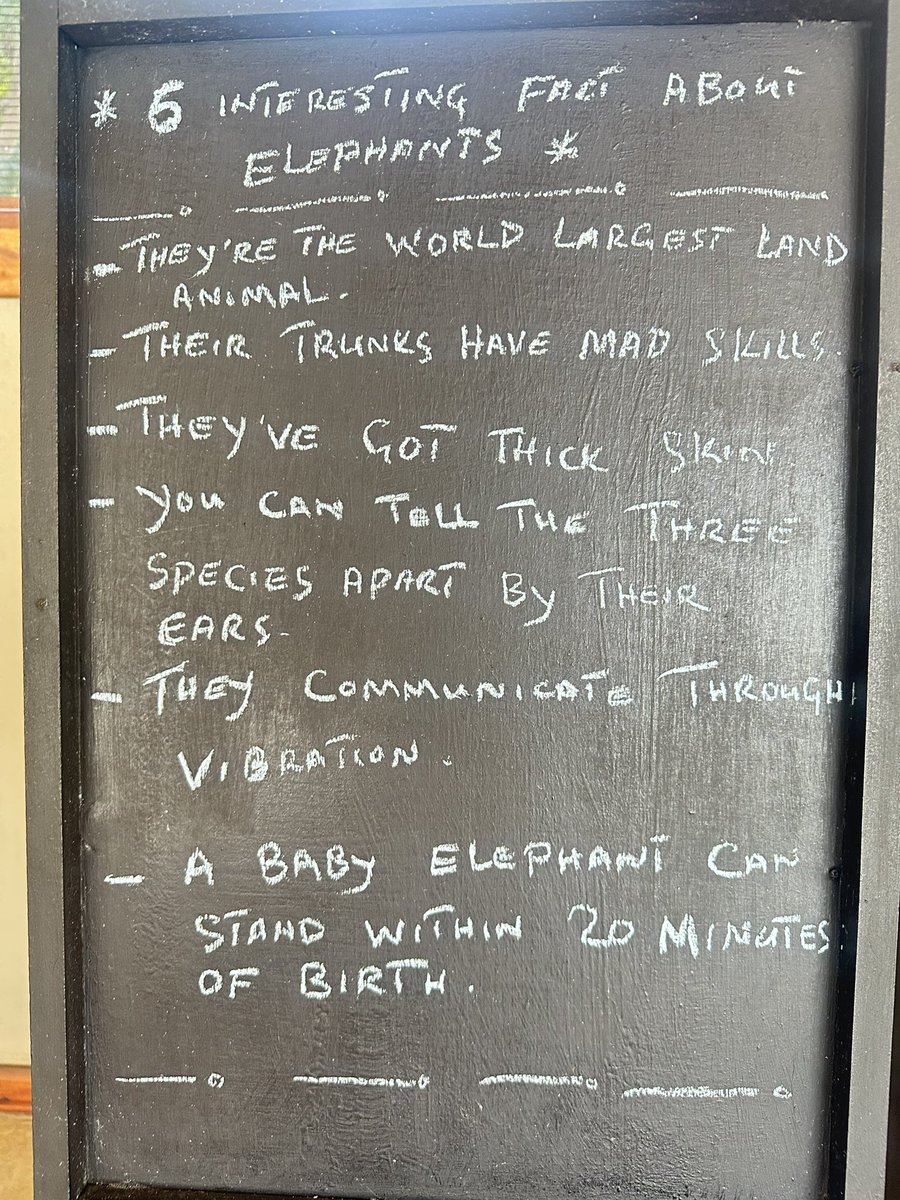 * 6 INTERESTING FACT ABOUT
ELEPHANTS *
- THEY'RE THE WORLD LARGEST LAND
ANIMAL.
- THEIR TRUNKS HAVE MAD SKILLS.
- THEY'VE GOT THICK SKIN
- YOU CAN TELL THE THREE
SPECIES APART BY THEIR
EARS.
- THEY COMMUNICATE THROUGH
VIBRATION.
- A BABY ELEPHANT CAN
STAND WITHIN 20 MINUTES
OF BIRTH.